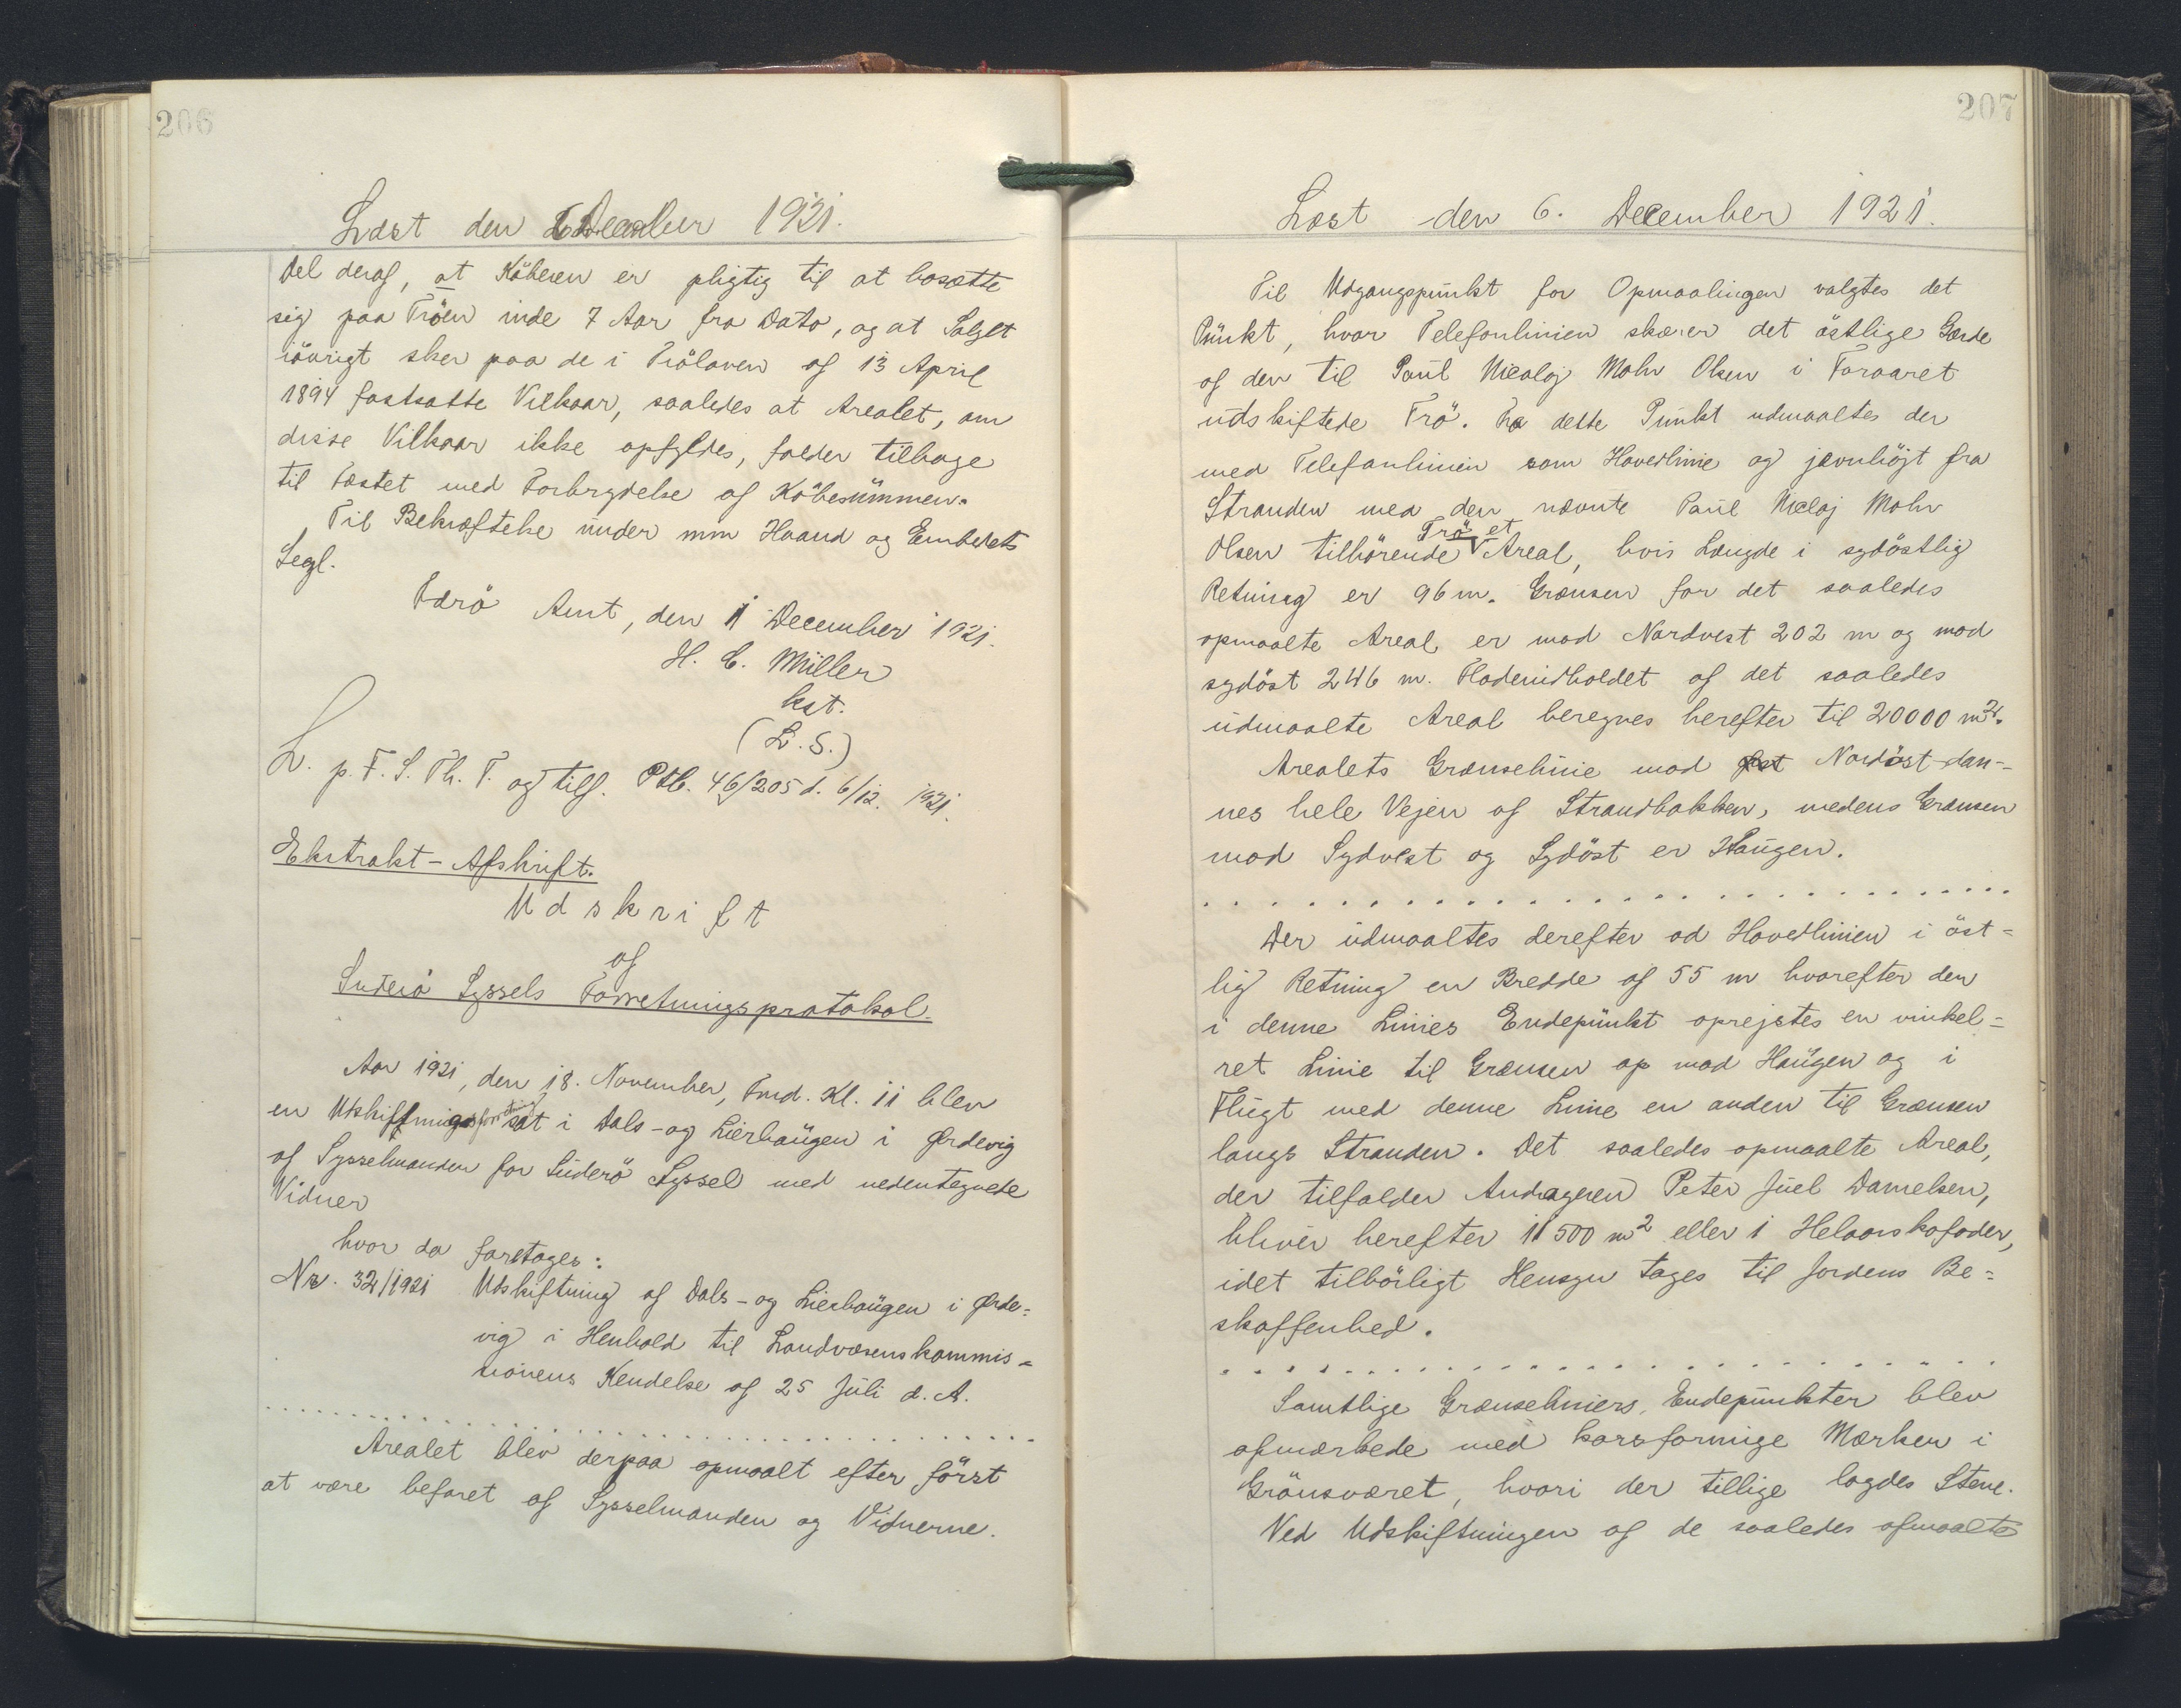 206
Læst den 6 December 1921.
Del deraf, at Köberen er pligtig til at bosætte
sig paa Tröen inde 7 Aar fra Dato, og at Salget
iövrigt sker paa de i Tröloven af 13 April
1894 fastsatte Vilkaar, saaledes at Arealet, om
disse Vilkaar ikke opfyldes, falder tilbage
til Fæstet med Forbrydelse af Köbesummen.
Til Bekræftelse under min Haand og Embedets
Segl.
Færö Amt, den 1 December 1921.
H. C. Müller
kst.
(L. S.)
L. p. F. S. Th. T. og tilf. Ptb. 46/205 d. 6/12. 1921.
Ekstrakt-Afskrift.
Udskrift
af
Suderö Syssels Forretningsprotokol.
Aar 1921, den 18. November, Fmd. Kl. 11 blev
en Udskiftningsforretning sat i Dals- og Lierhaugen i Ørdevig
af Sysselmanden for Suderö Syssel med nedentegnede
Vidner
hvor da foretages:
Nr. 32/1921 Udskiftning af Dals- og Lierhaugen i Ørde=
vig i Henhold til Landvæsenskommis=
sionens Kendelse af 25 Juli d. A.
. . . . . . . . . . . . . . . . . . . . . . . . . . . .
Arealet blev derpaa opmaalt efter först
at være befaret af Sysselmanden og Vidnerne.
207
Læst den 6. December 1921.
Til Udgangspunkt for Opmaalingen valgtes det
Punkt, hvor Telefonlinien skærer det östlige Gærde
af den til Paul Nicolaj Mohr Olsen i Foraaret
udskiftede Trö. Fra dette Punkt udmaaltes der
med Telefonlinien som Hovedlinie og jævnhöjt fra
Stranden med den nævnte Paul Nicolaj Mohr
Olsen tilhörende Trö et Areal, hvis Længde i sydöstlig
Retning er 96 m. Grænsen for det saaledes
opmaalte Areal er mod Nordvest 202 m og mod
sydöst 246 m. Fladeindholdet af det saaledes
udmaalte Areal beregnes herefter til 20000 m².
Arealets Grænselinie mod Nordöst dan-
nes hele Vejen af Strandbakken, medens Grænsen
mod Sydvest og Sydöst er Haugen.
. . . . . . . . . . . . . . . . . . . . . . . .
Der udmaaltes derefter ad Hovedlinien i öst=
lig Retning en Bredde af 55 m hvorefter den
i denne Linies Endepunkt oprejstes en vinkel=
ret Linie til Grænsen op mod Haugen og i
Flugt med denne Linie en anden til Grænsen
langs Stranden. Det saaledes opmaalte Areal,
der tilfalder Andrageren Peter Juel Danielsen,
bliver herefter 11500 m² eller 1 Helaarskofoder,
idet tilbörligt Hensyn tages til Jordens Be=
skaffenhed.
. . . . . . . . . . . . . . . . . . . . . . . .
Samtlige Grænseliniers Endepunkter blev
afmærkede med korsformige Mærker i
Grönsværet, hvori der tillige lagdes Stene.
Ved Udskiftningen af de saaledes afmaalte